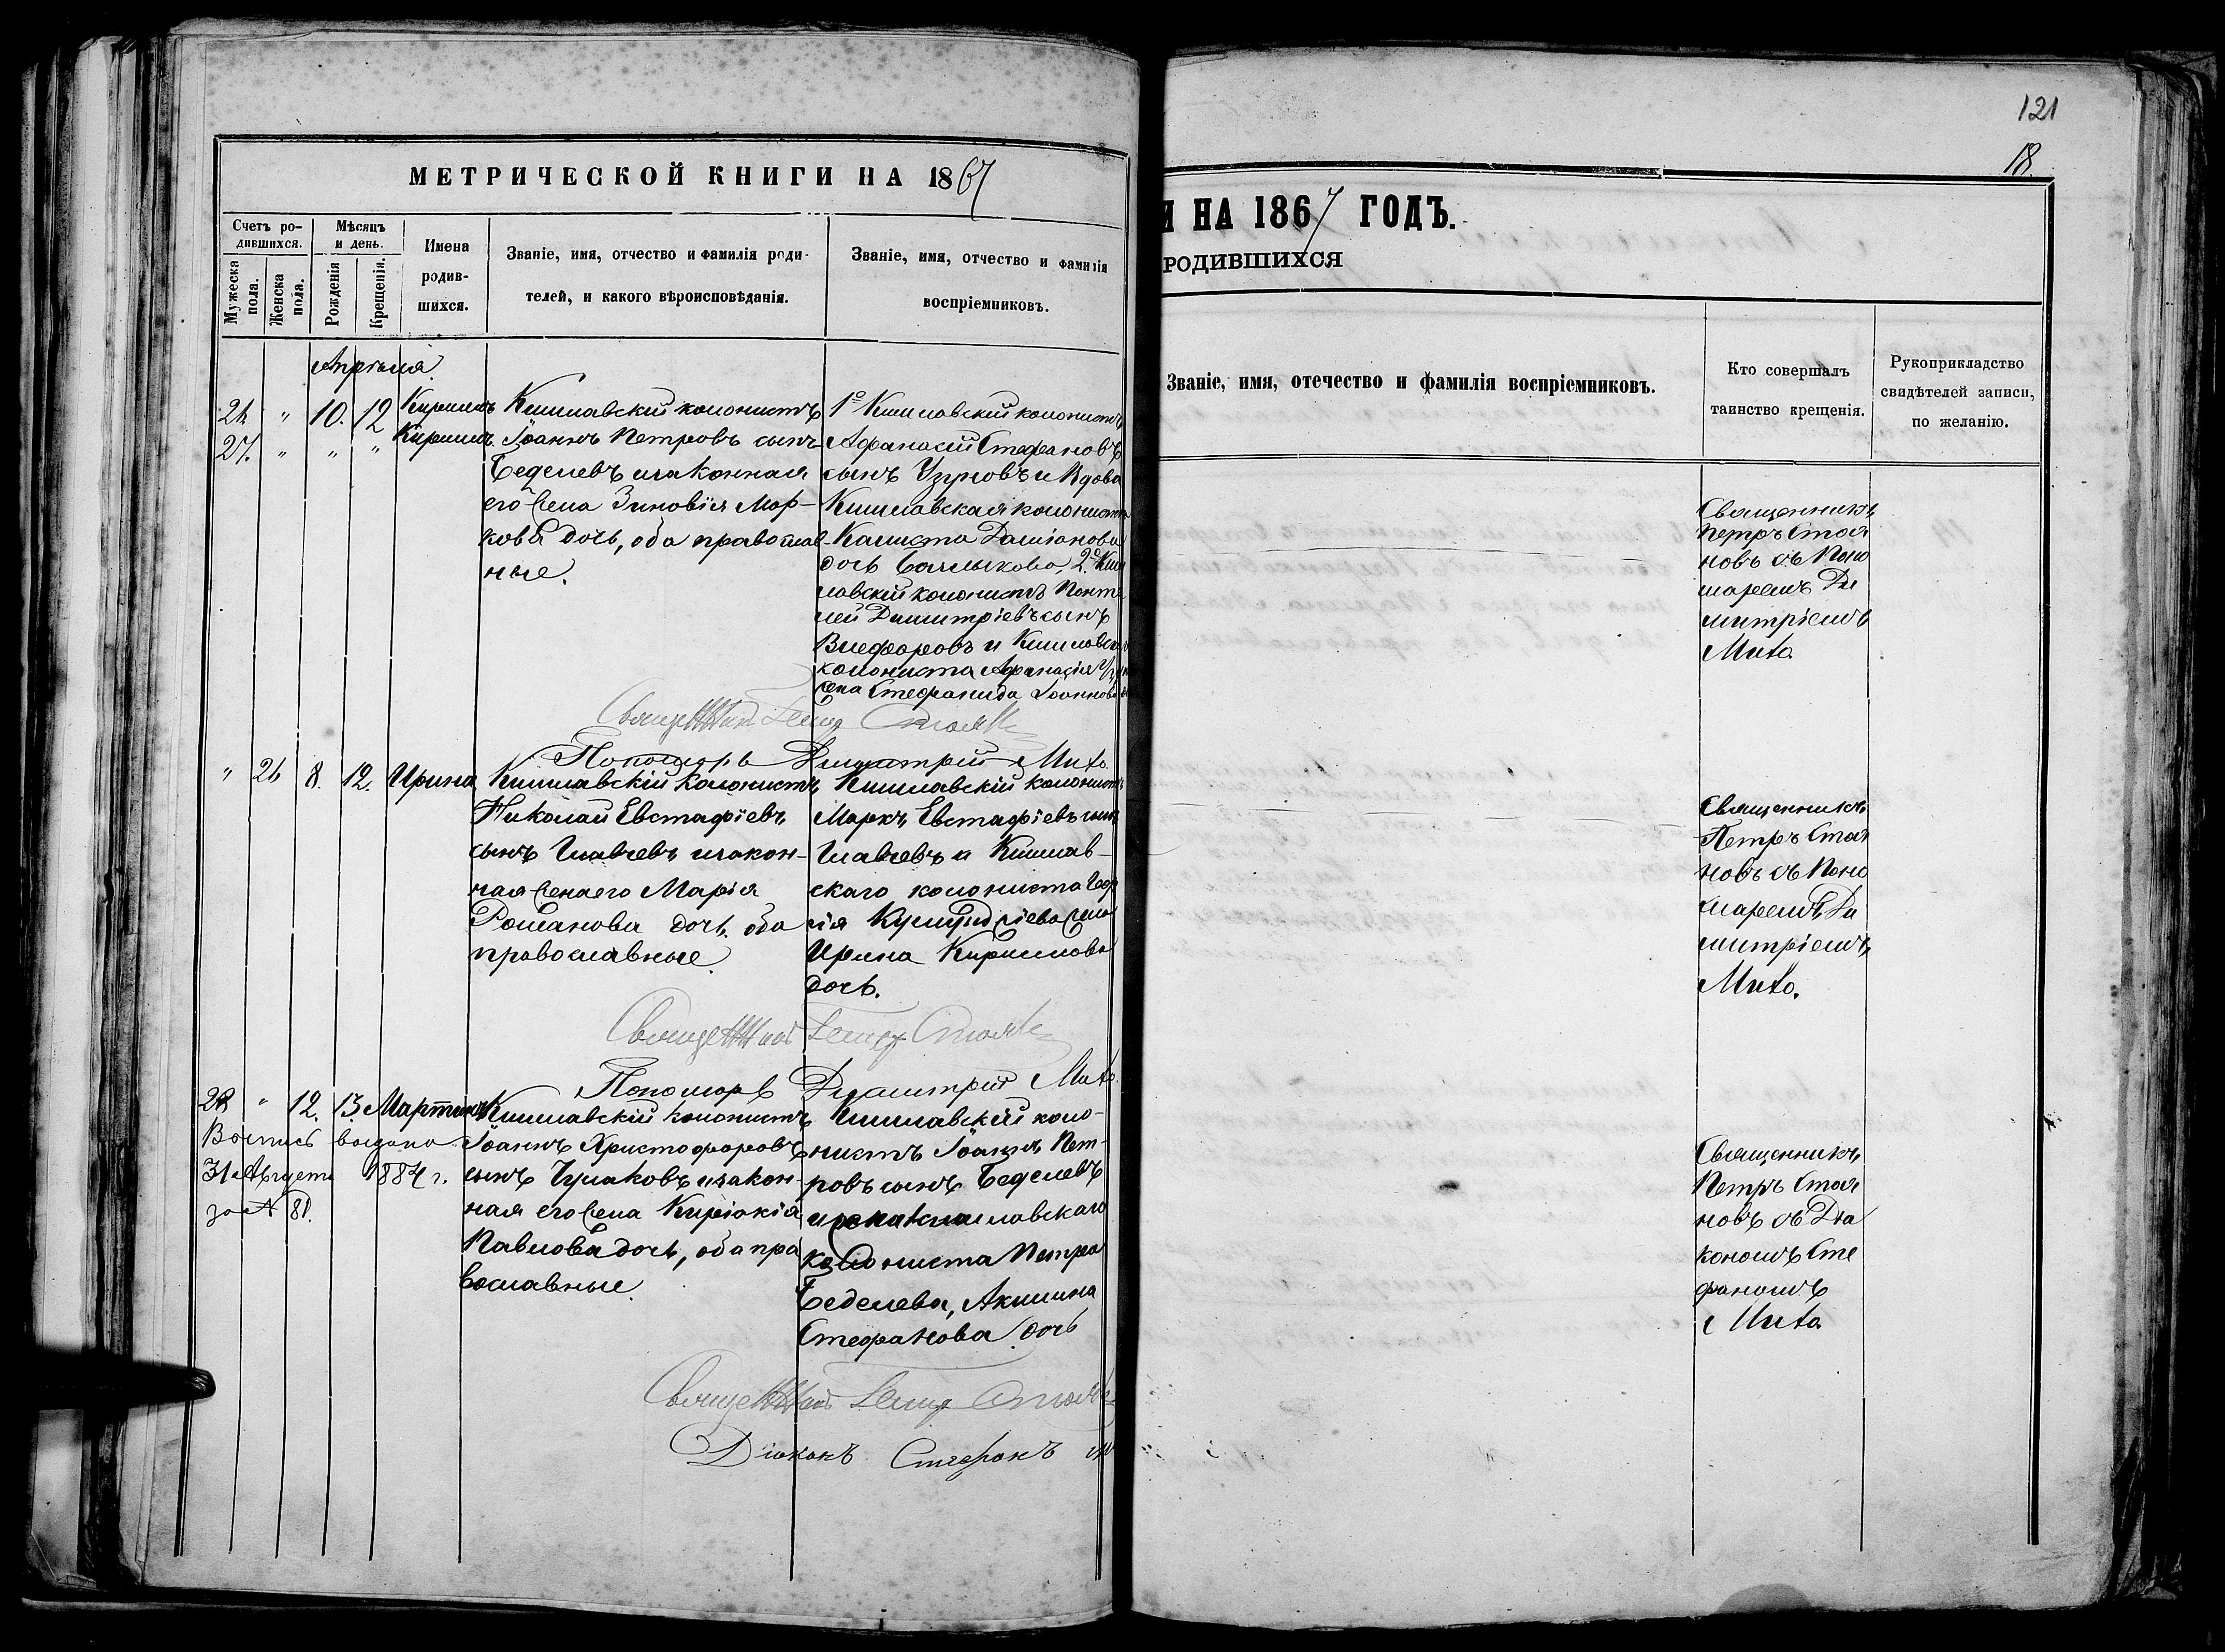 121
18.
МЕТРИЧЕСКОЙ КНИГИ НА 1867
И НА 1867 ГОДЪ.
РОДИВШИХСЯ
Счетъ ро-
дившихся.
Мужеска
пола.
Женска
пола.
Мѣсяцъ
и день.
Рожденія
Крещенія.
Имена
родив-
шихся.
Званіе, имя, отчество и фамилія роди-
телей, и какого вѣроисповѣданія.
Званіе, имя, отчество и фамилія
воспріемниковъ.
Званіе, имя, отечество и фамилія воспріемниковъ.
Кто совершалъ
таинство крещенія.
Рукоприкладство
свидѣтелей записи,
по желанію.
Апрѣля
" 10. 12
27. " " "
Кишлавскій колонистъ
Іоаннъ Петровъ сынъ
Беделевъ и законная
его жена Зиновія Мар-
кова дочь, оба православ-
ные.
1º Кишлавскій колонистъ
Афанасій Стефановъ
сынъ Узуновъ и Вдова
Кишлавская колонистка
Калиста Даміанова
дочь 2º Киш
лавскій колонистъ Панте
лей Димитріевъ сынъ
и Кишлавск
колониста Афанасія
жена Стефанида Іоаннова
Священникъ
Петръ Стоя
новъ съ Поно
маремъ Ди
митріемъ
Мито
Священникъ Петръ Стоян
Пономарь Димитрій Мито.
" 26 8. 12. Ирина
Кишлавскій колонистъ
Николай Евстафіевъ
сынъ Главчевъ и закон-
ная жена его Марія
Романова дочь, оба
православные.
Кишлавскій колонистъ
Маркъ Евстафіевъ сынъ
Главчевъ и Кишлав-
скаго колониста Геор
гія жена
Ирина Кириллова
дочь.
Священникъ
Петръ Стоя
новъ съ Поно
маремъ Ди
митріемъ
Мито.
Священникъ Петръ Стоян
Пономарь Димитрій Мито.
28 " 12. 13. Мартинъ
Выпись выдана
31 Августа 1884 г.
за № 81.
Кишлавскій колонистъ
Іоаннъ Христофоровъ
сынъ Чумаковъ и закон-
ная его жена Киріакія
Павлова дочь, оба пра
вославные.
Кишлавскій коло-
нистъ Іоаннъ Пет-
ровъ сынъ Беделевъ
и жена Кишлавскаго
колониста Петра
Беделева, Акилина
Стефанова дочь
Священникъ
Петръ Стоя
новъ съ Діа
кономъ Сте
фаномъ
Мито
Священникъ Петръ Стоян
Діаконъ Стефанъ М